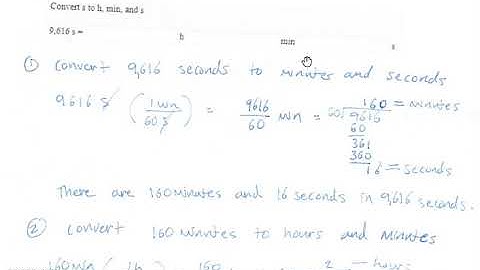 Convert s to h, min, and s
9,616 s = h min s
① Convert 9,616 seconds to minutes and seconds
9616 s (1 min / 60 s) = 9616 / 60 min = 60 160 = minutes
9616
60
361
360
16 = seconds
There are 160 minutes and 16 seconds in 9,616 seconds.
② Convert 160 minutes to hours and minutes
160 min ( 1h = 160 = 2 — hours